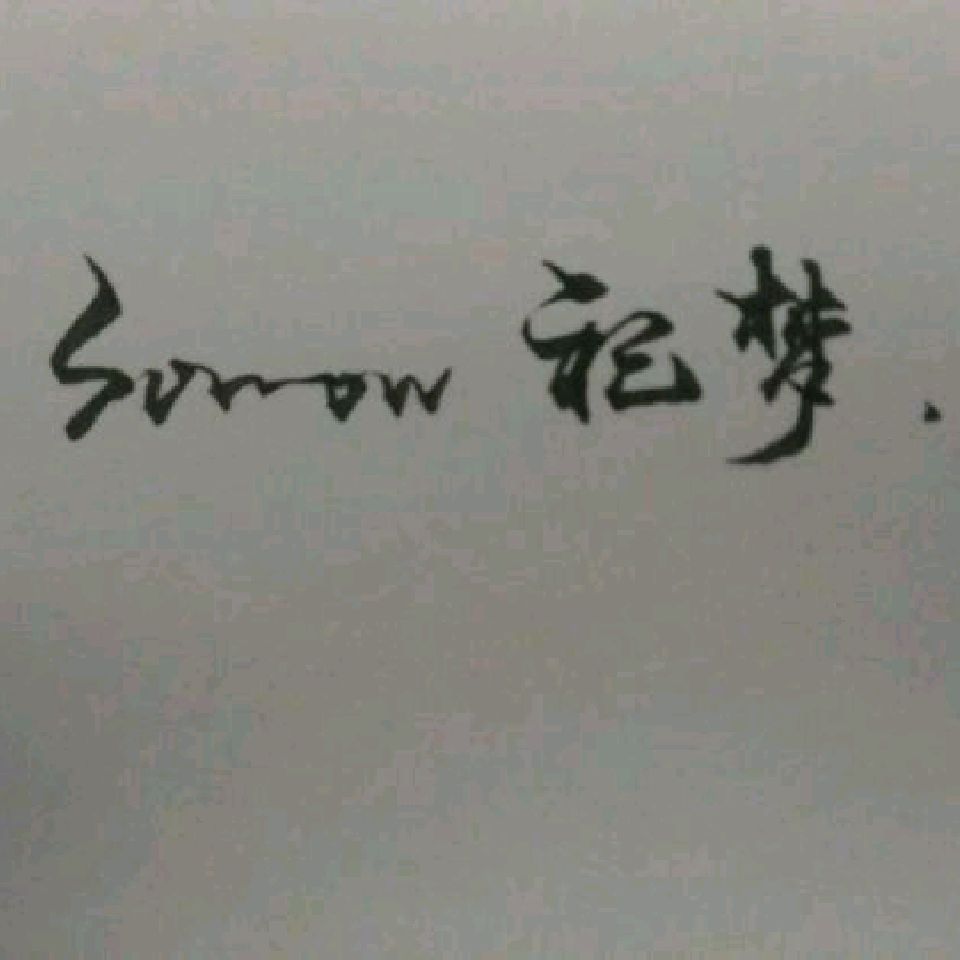 Sorrow 祀梦.